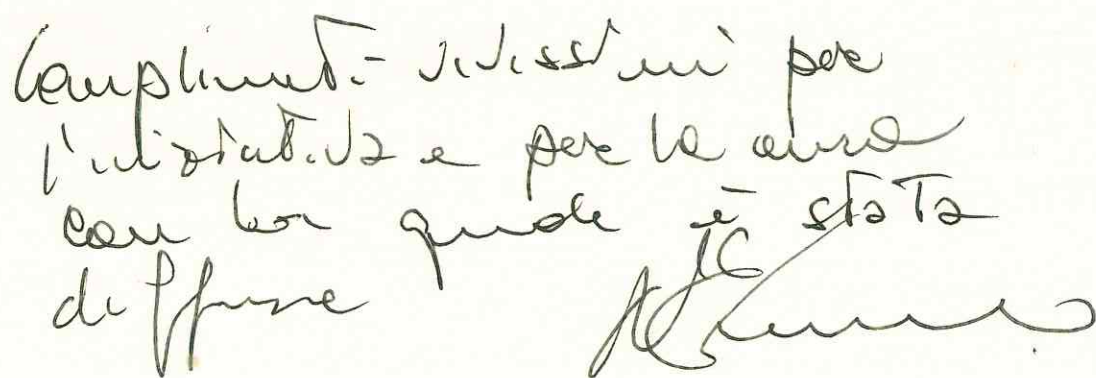 Complimenti vivissimi per
l'iniziativa e per la cura
con la quale è stata
diffusa